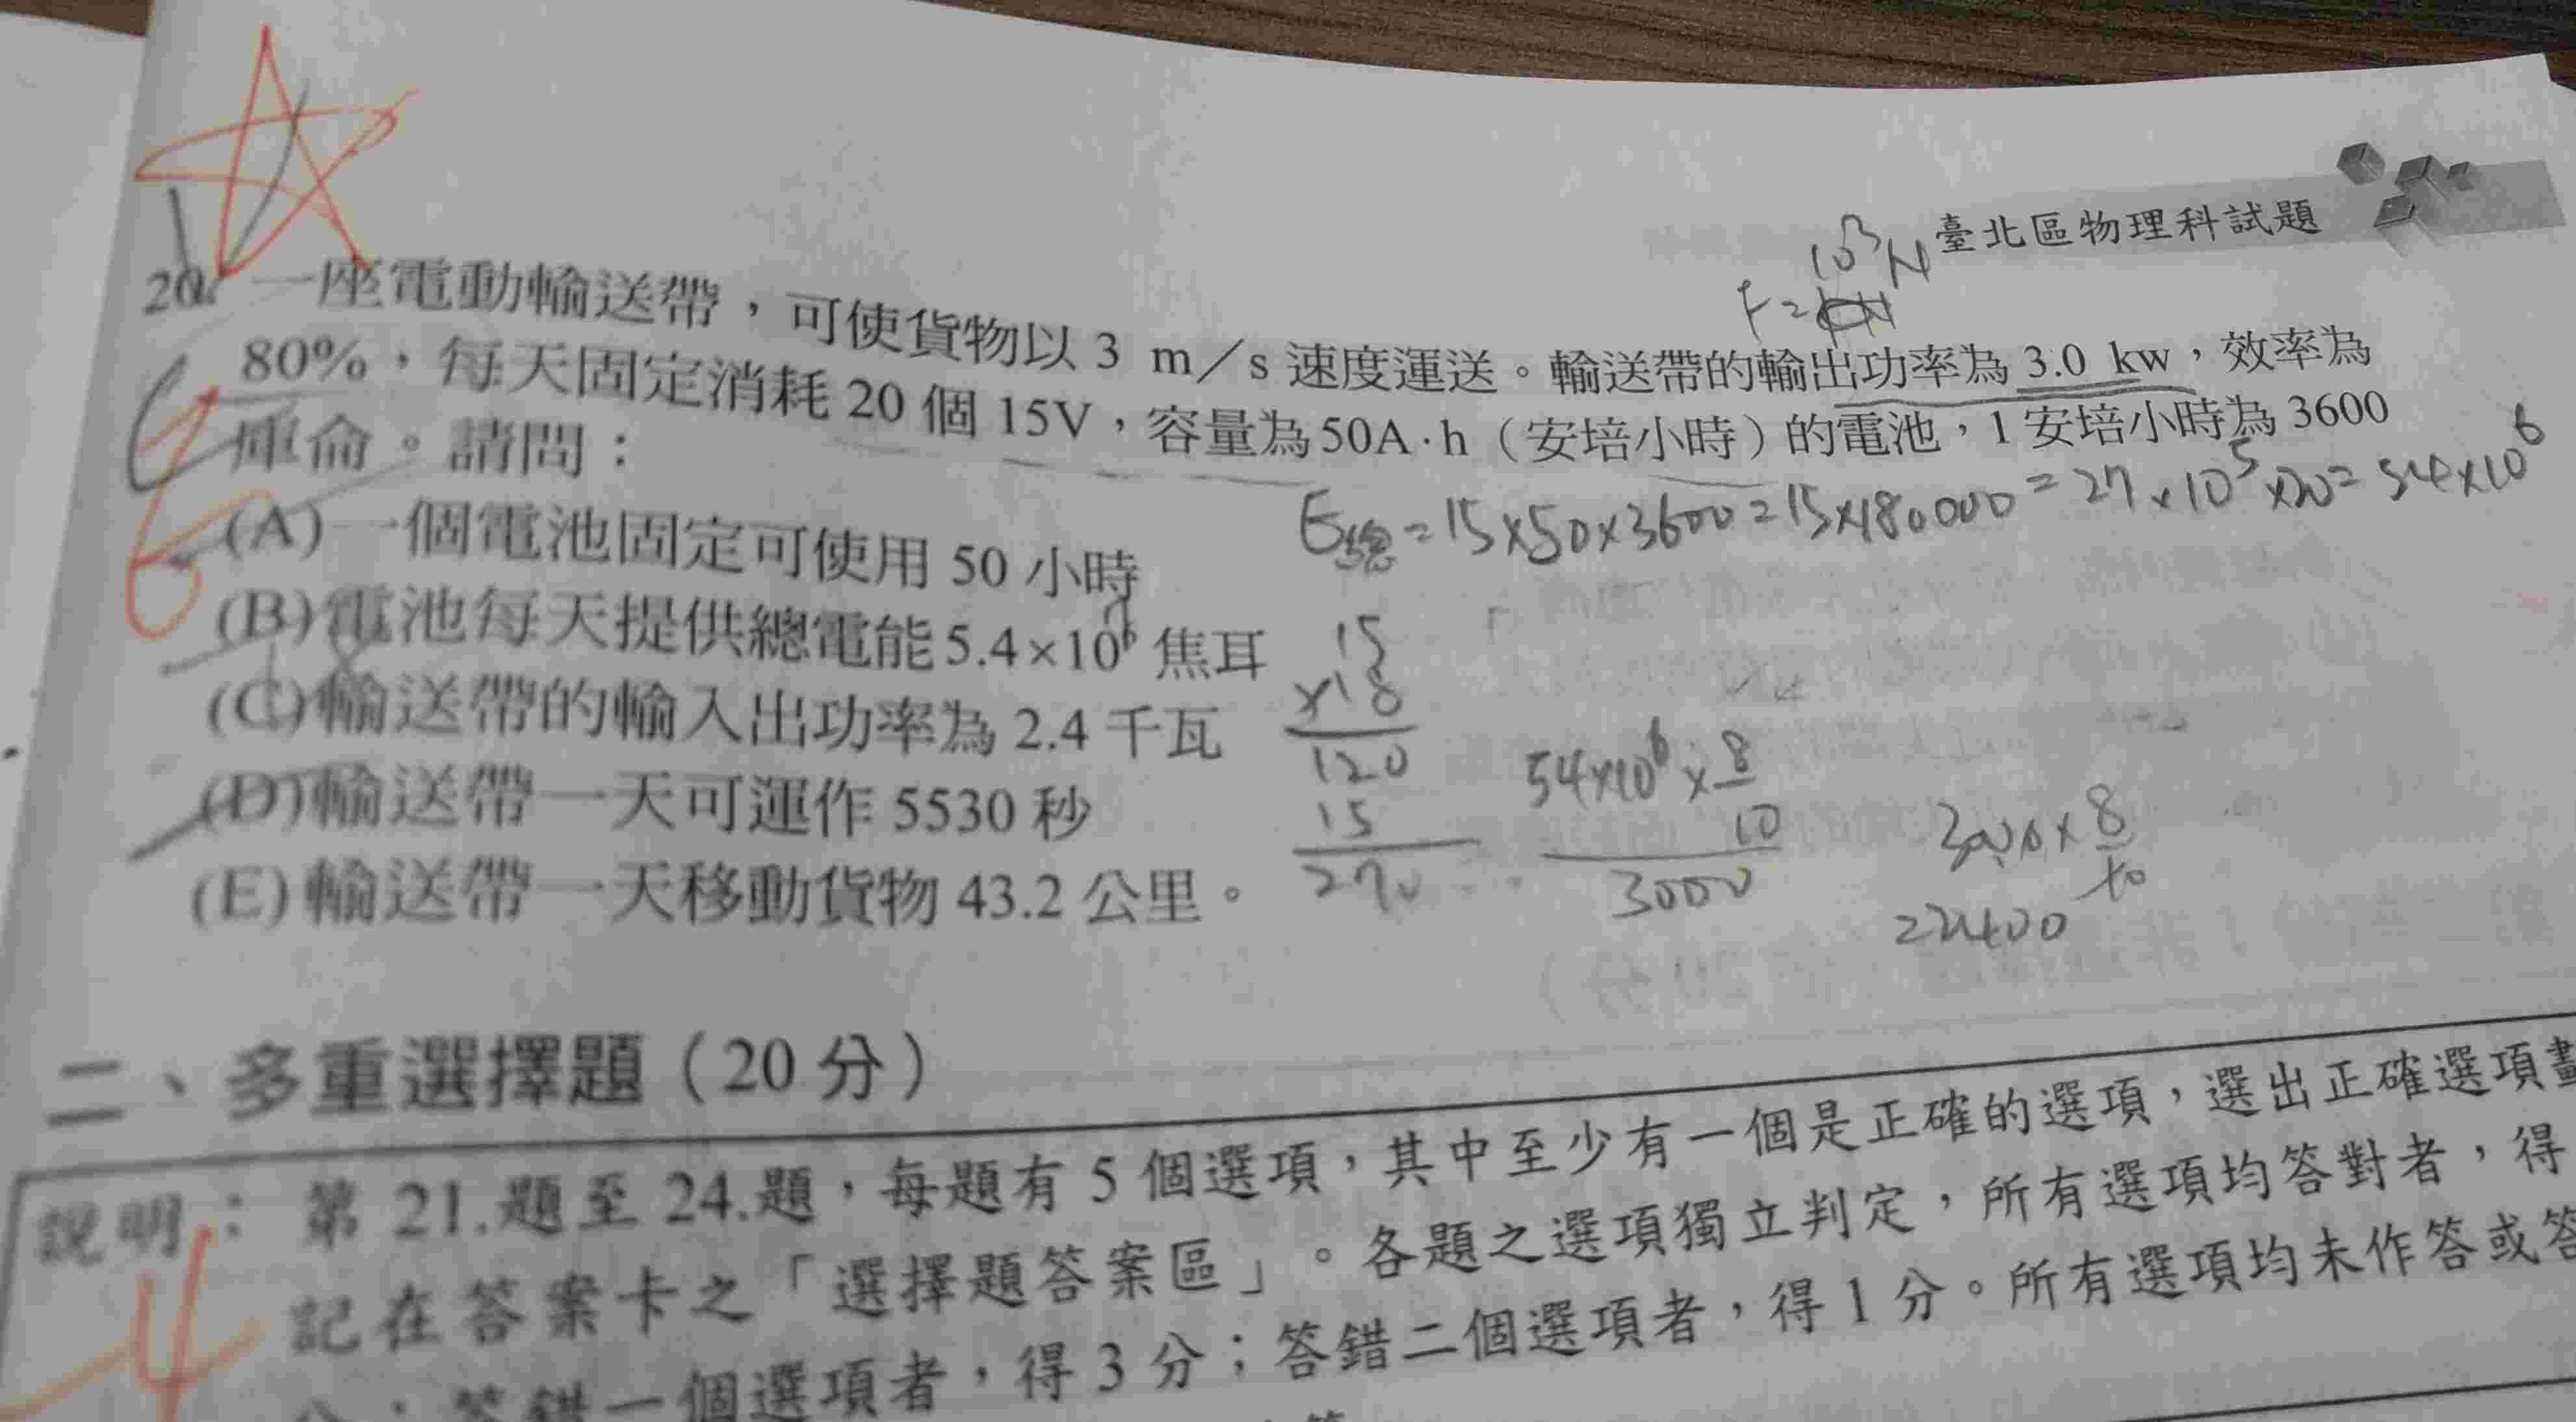 臺北區物理科試題
10³N
F=
20. 一座電動輸送帶,可使貨物以 3 m/s 速度運送。輸送帶的輸出功率為 3.0 kw,效率為
80%,每天固定消耗 20 個 15V,容量為 50A·h(安培小時)的電池,1 安培小時為 3600
庫侖。請問:
E總=15×50×3600=15×180000=27×10⁵×20=54×10⁶
(A)一個電池固定可使用 50 小時
(B)電池每天提供總電能 5.4×10⁶ 焦耳
(C)輸送帶的輸入出功率為 2.4 千瓦
(D)輸送帶一天可運作 5530 秒
(E)輸送帶一天移動貨物 43.2 公里。
15
×18
120
15
270
54×10⁶×8
10
3000
3000×8
10
=2400
二、多重選擇題(20 分)
說明:第 21.題至 24.題,每題有 5 個選項,其中至少有一個是正確的選項,選出正確選項畫
記在答案卡之「選擇題答案區」。各題之選項獨立判定,所有選項均答對者,得
分;答錯一個選項者,得 3 分;答錯二個選項者,得 1 分。所有選項均未作答或答